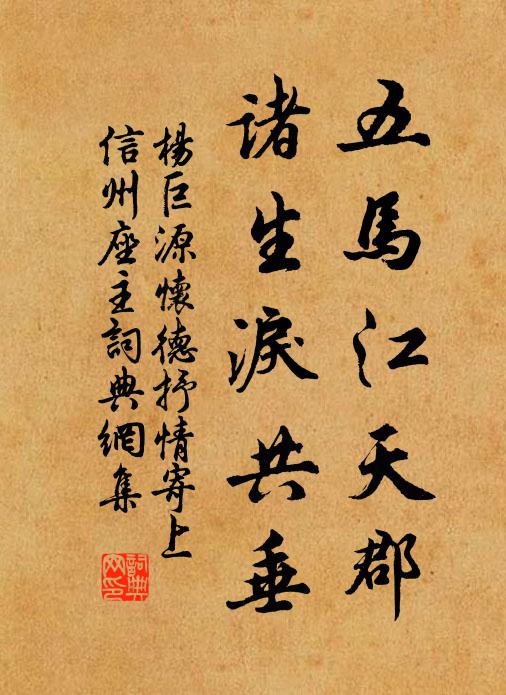 五馬江天郡
诸生淚共垂
楊巨源懷德抒情寄上
信州座主詞典網集
詞典
网印